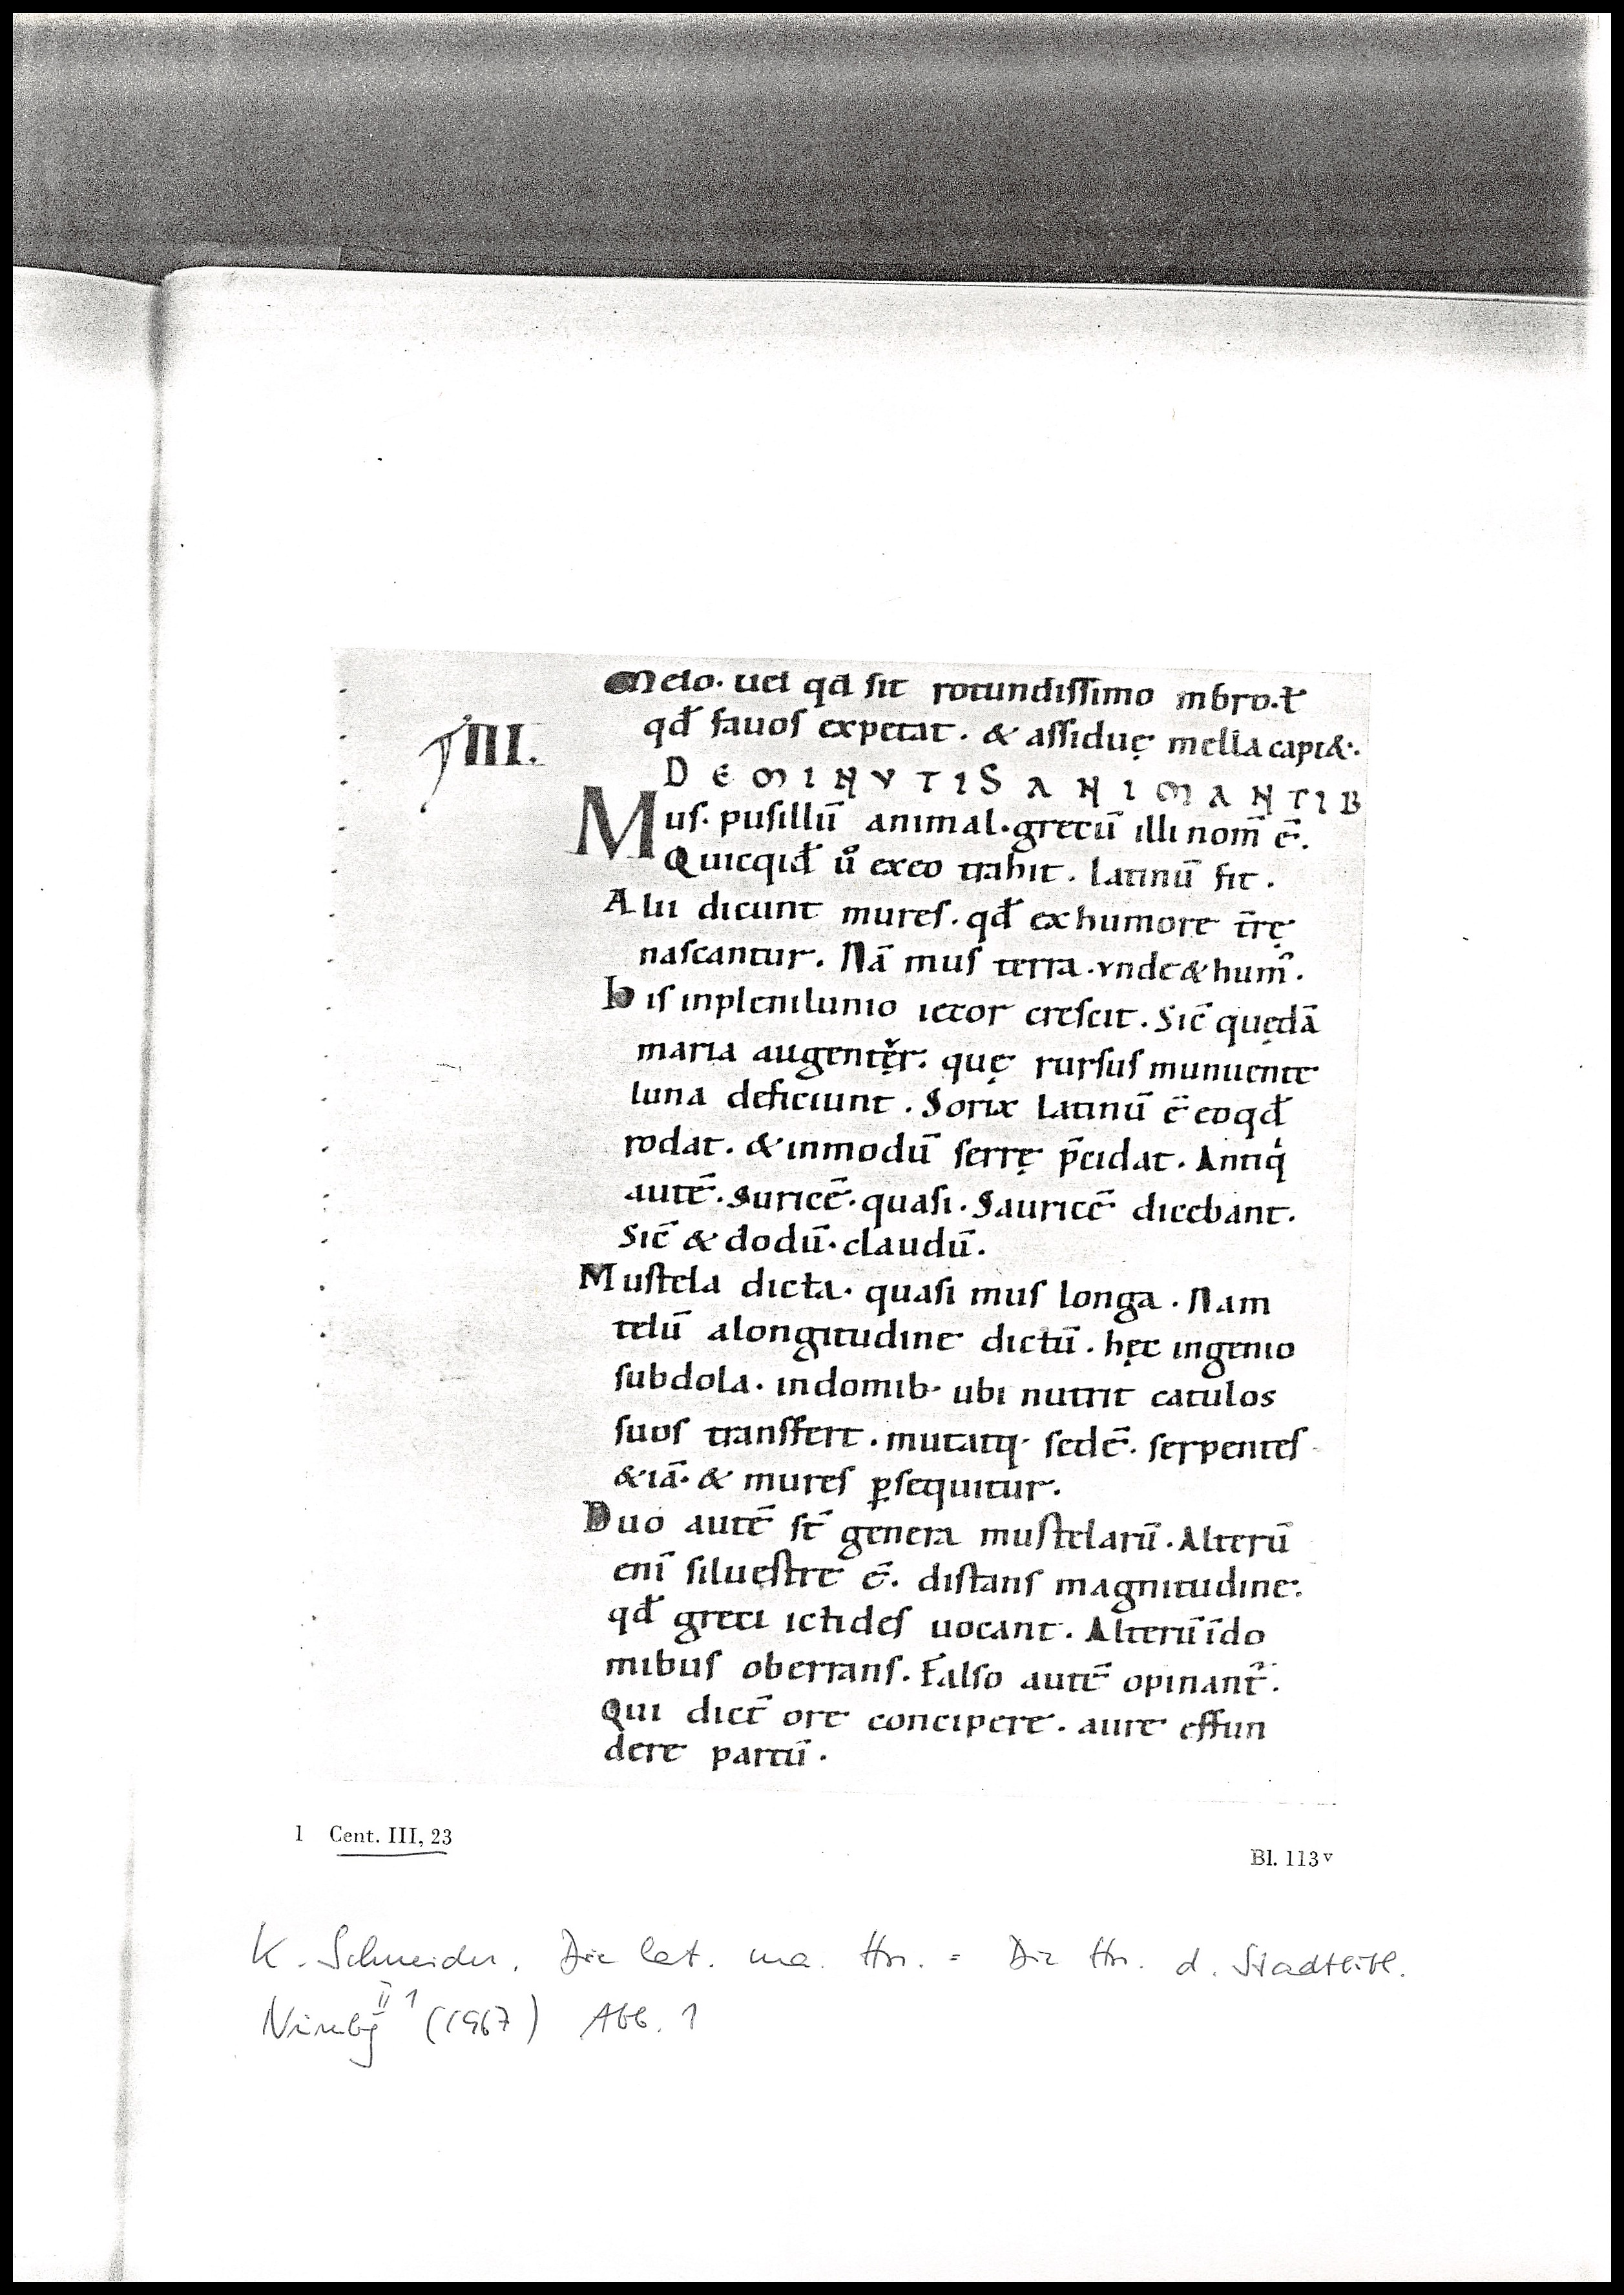 Melo. uel qđ sit rotundissimo mbro. ł
qđ fauos expetat. & assiduę mella capi&.
III.
DE MINVTIS ANIMANTIB
Mus. pusillū animal. grecū illi nom̄ ē.
Quicqid̄ ů exeo trahit. Latinū fit.
Alii dicunt mures. qđ exhumore tr̄ę
nascantur. Nā mus terra. vnde & hum᷒.
his inplenilunio iecor crescit. Sic̄ quędā
maria augentęr. quę rursus munuente
luna deficiunt. Sorix Latinū ē eoqđ
rodat. & inmodū serrę p̄cidat. Antiqͥ
autē. Suricē. quasi. Sauricē dicebant.
Sic̄ & dodū. claudū.
Mustela dicta. quasi mus longa. Nam
telū alongitudine dictū. hęc ingenio
subdola. indomib· ubi nutrit catulos
suos transfert. mutatq· sedē. serpentes
& iā. & mures ꝑsequitur.
Duo autē st̄ genera mustelarū. Alterū
enī siluestre ē. distans magnitudine.
qđ greci ictides uocant. Alterū īdo
mibus oberrans. Falso autē opinant᷑.
Qui dict̄ ore concipere. aure effun
dere partū.
1 Cent. III, 23
Bl. 113v
K. Schneider, Die lat. ma. Hss. = Die Hss. d. Stadtbibl.
Nürnbg II 1 (1967) Abb. 1